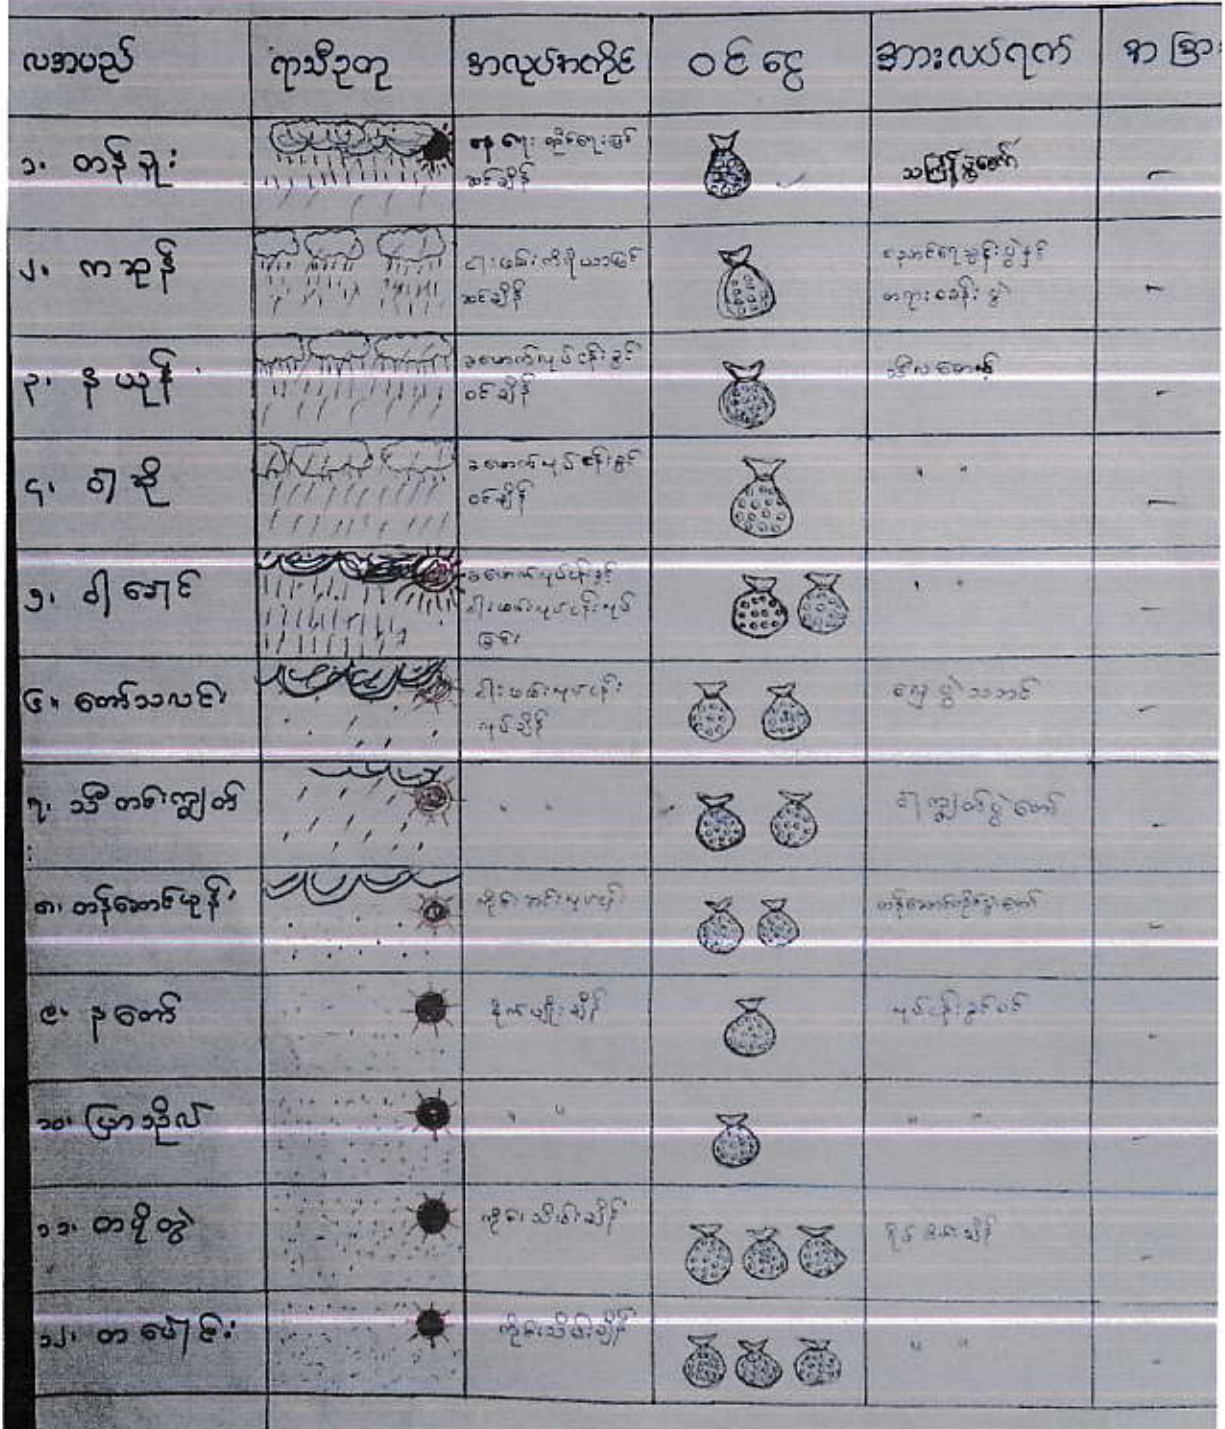 လအမည် ရာသီဥတု အလုပ်အကိုင် ဝင်ငွေ အားလပ်ရက်
၁။ တန်ခူး
ဆင်ချိန် သင်္ကြန်ပွဲတော် –
၂။ ကဆုန် ငါးဖမ်း
ဆင်ချိန် ညောင်ရေသွန်းပွဲနှင့်
တရားစခန်းပွဲ –
၃။ နယုန် ခမောက်လုပ်ငန်းခွင်
ဝင်ချိန် –
၄။ ဝါဆို ခမောက်လုပ်ငန်းခွင်
ဝင်ချိန် " " –
၅။ ဝါခေါင် ခမောက်လုပ်ငန်းနှင့်
ငါးဖမ်းလုပ်ငန်းလုပ်
ခြင်း " " –
၆။ တော်သလင်း ငါးဖမ်းလုပ်ငန်း
လုပ်ချိန် လှေပွဲသဘင် –
၇။ သီတင်းကျွတ် " " ဝါကျွတ်ပွဲတော် –
၈။ တန်ဆောင်မုန်း ကိုင်းလုပ်ငန်း –
၉။ နတော် စိုက်ပျိုးချိန် လုပ်ငန်းခွင်ဝင် –
၁၀။ ပြာသိုလ် " " " " –
၁၁။ တပို့တွဲ ကိုင်းသိမ်းချိန် –
၁၂။ တပေါင်း ကိုင်းသိမ်းချိန် " " –